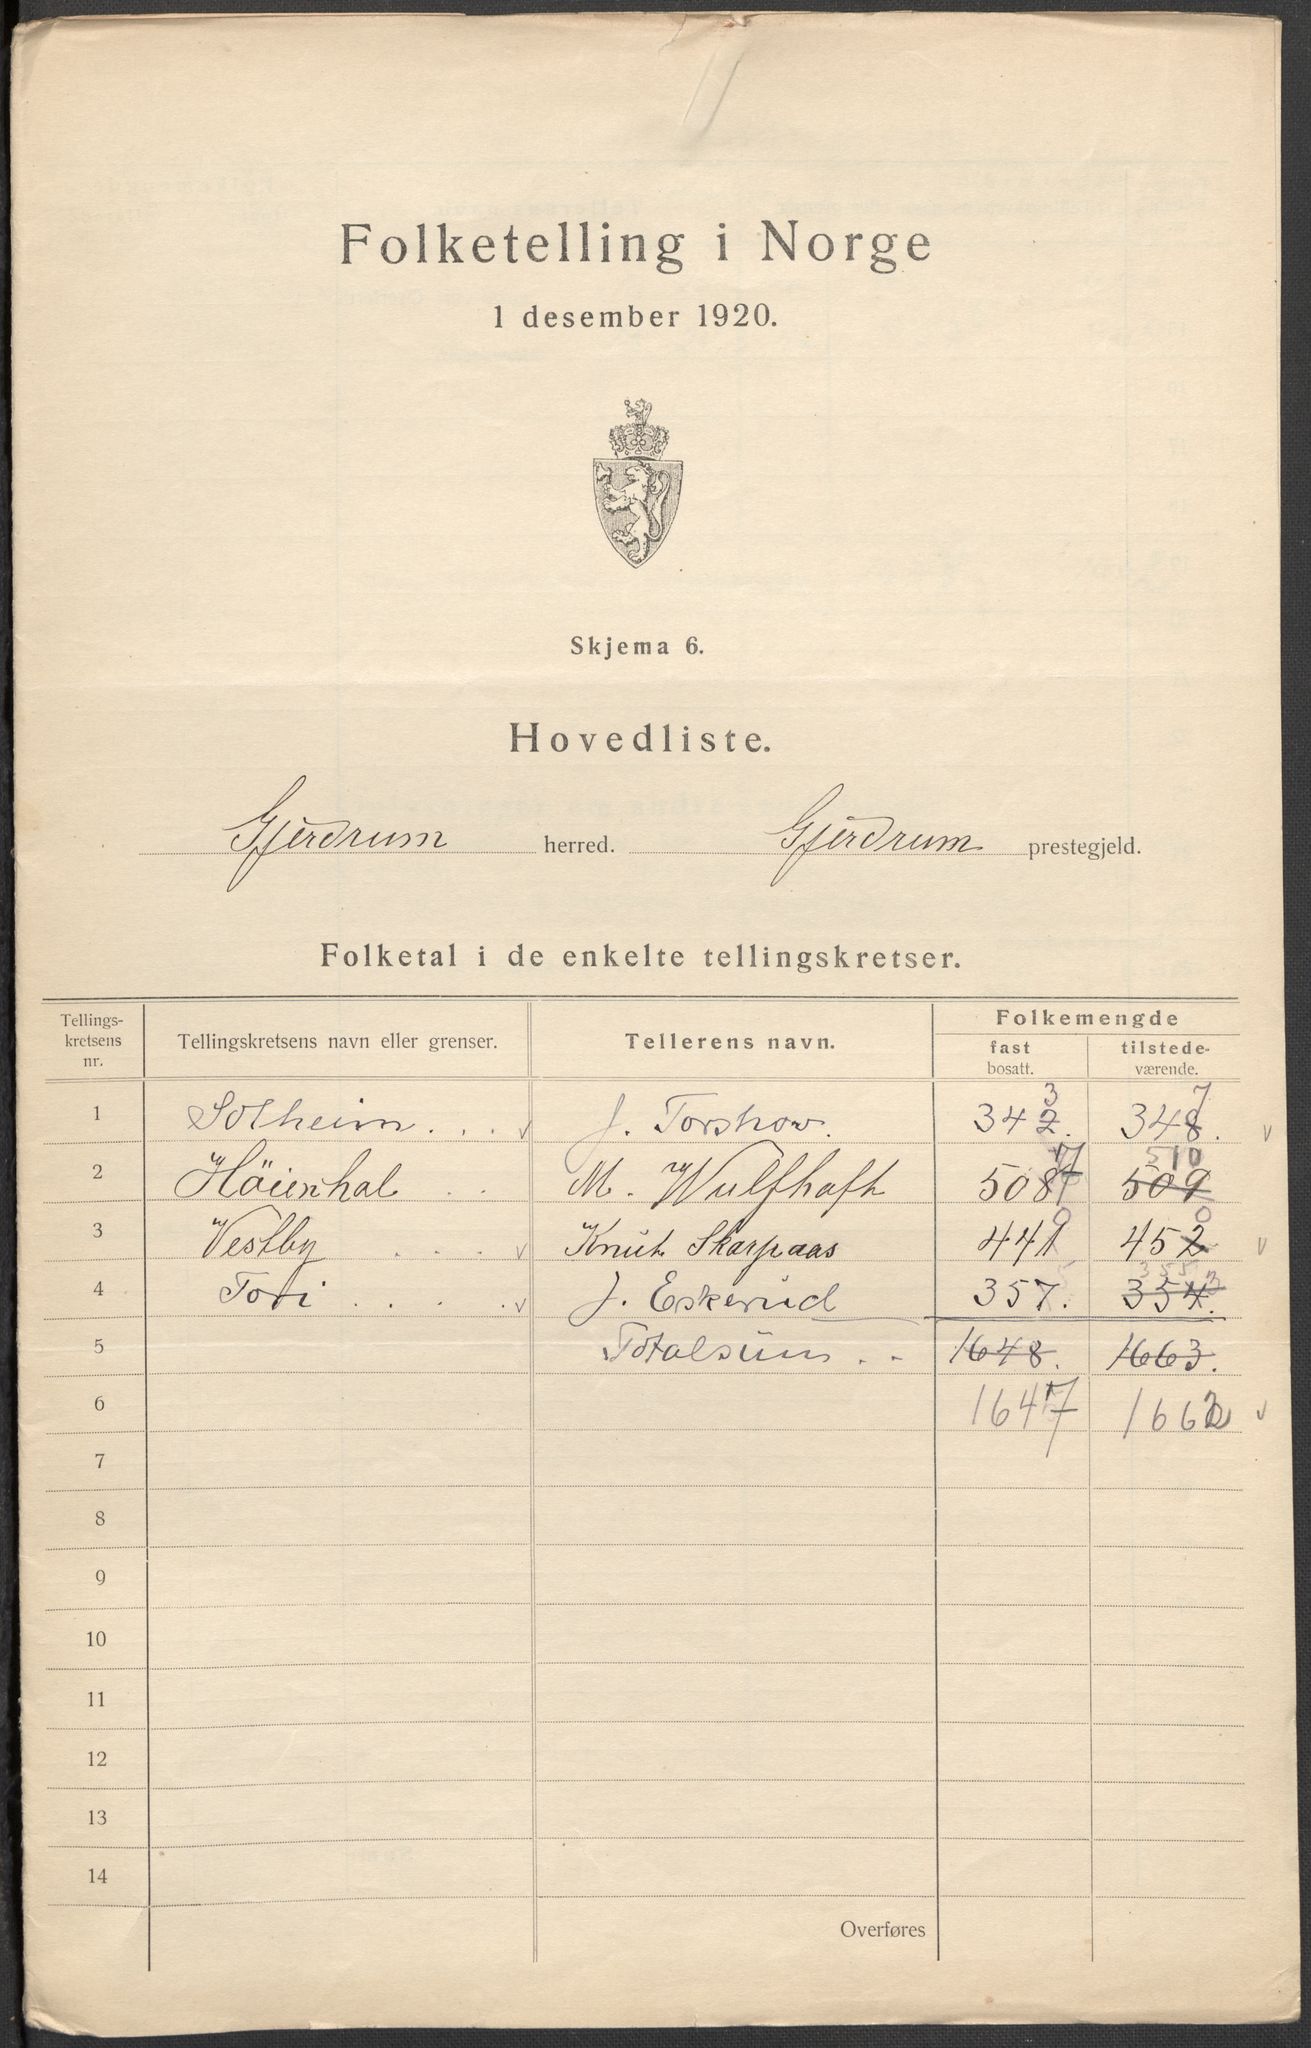 Folketelling i Norge
1 desember 1920.
Skjema 6.
Hovedliste.
Gjerdrum herred. Gjerdrum prestegjeld.
Folketal i de enkelte tellingskretser.
Tellings-
kretsens
nr.
Tellingskretsens navn eller grenser.
Tellerens navn.
Folkemengde
fast
bosatt.
tilstede-
værende.
3 7
1 Solheim . . . v J. Torshov. 342. 348. v
7 510
2 Höienhal . . M. Wulfhaft 508 509
0 0
3 Vestby . . . . v Knut Skarpaas 441 452 v
5 355 3
4 Tori . . . . v J. Eskerud 357. 354.
5 Totalsum . . 1648. 1663.
6 1647 1662 v
7
8
9
10
11
12
13
14
Overføres